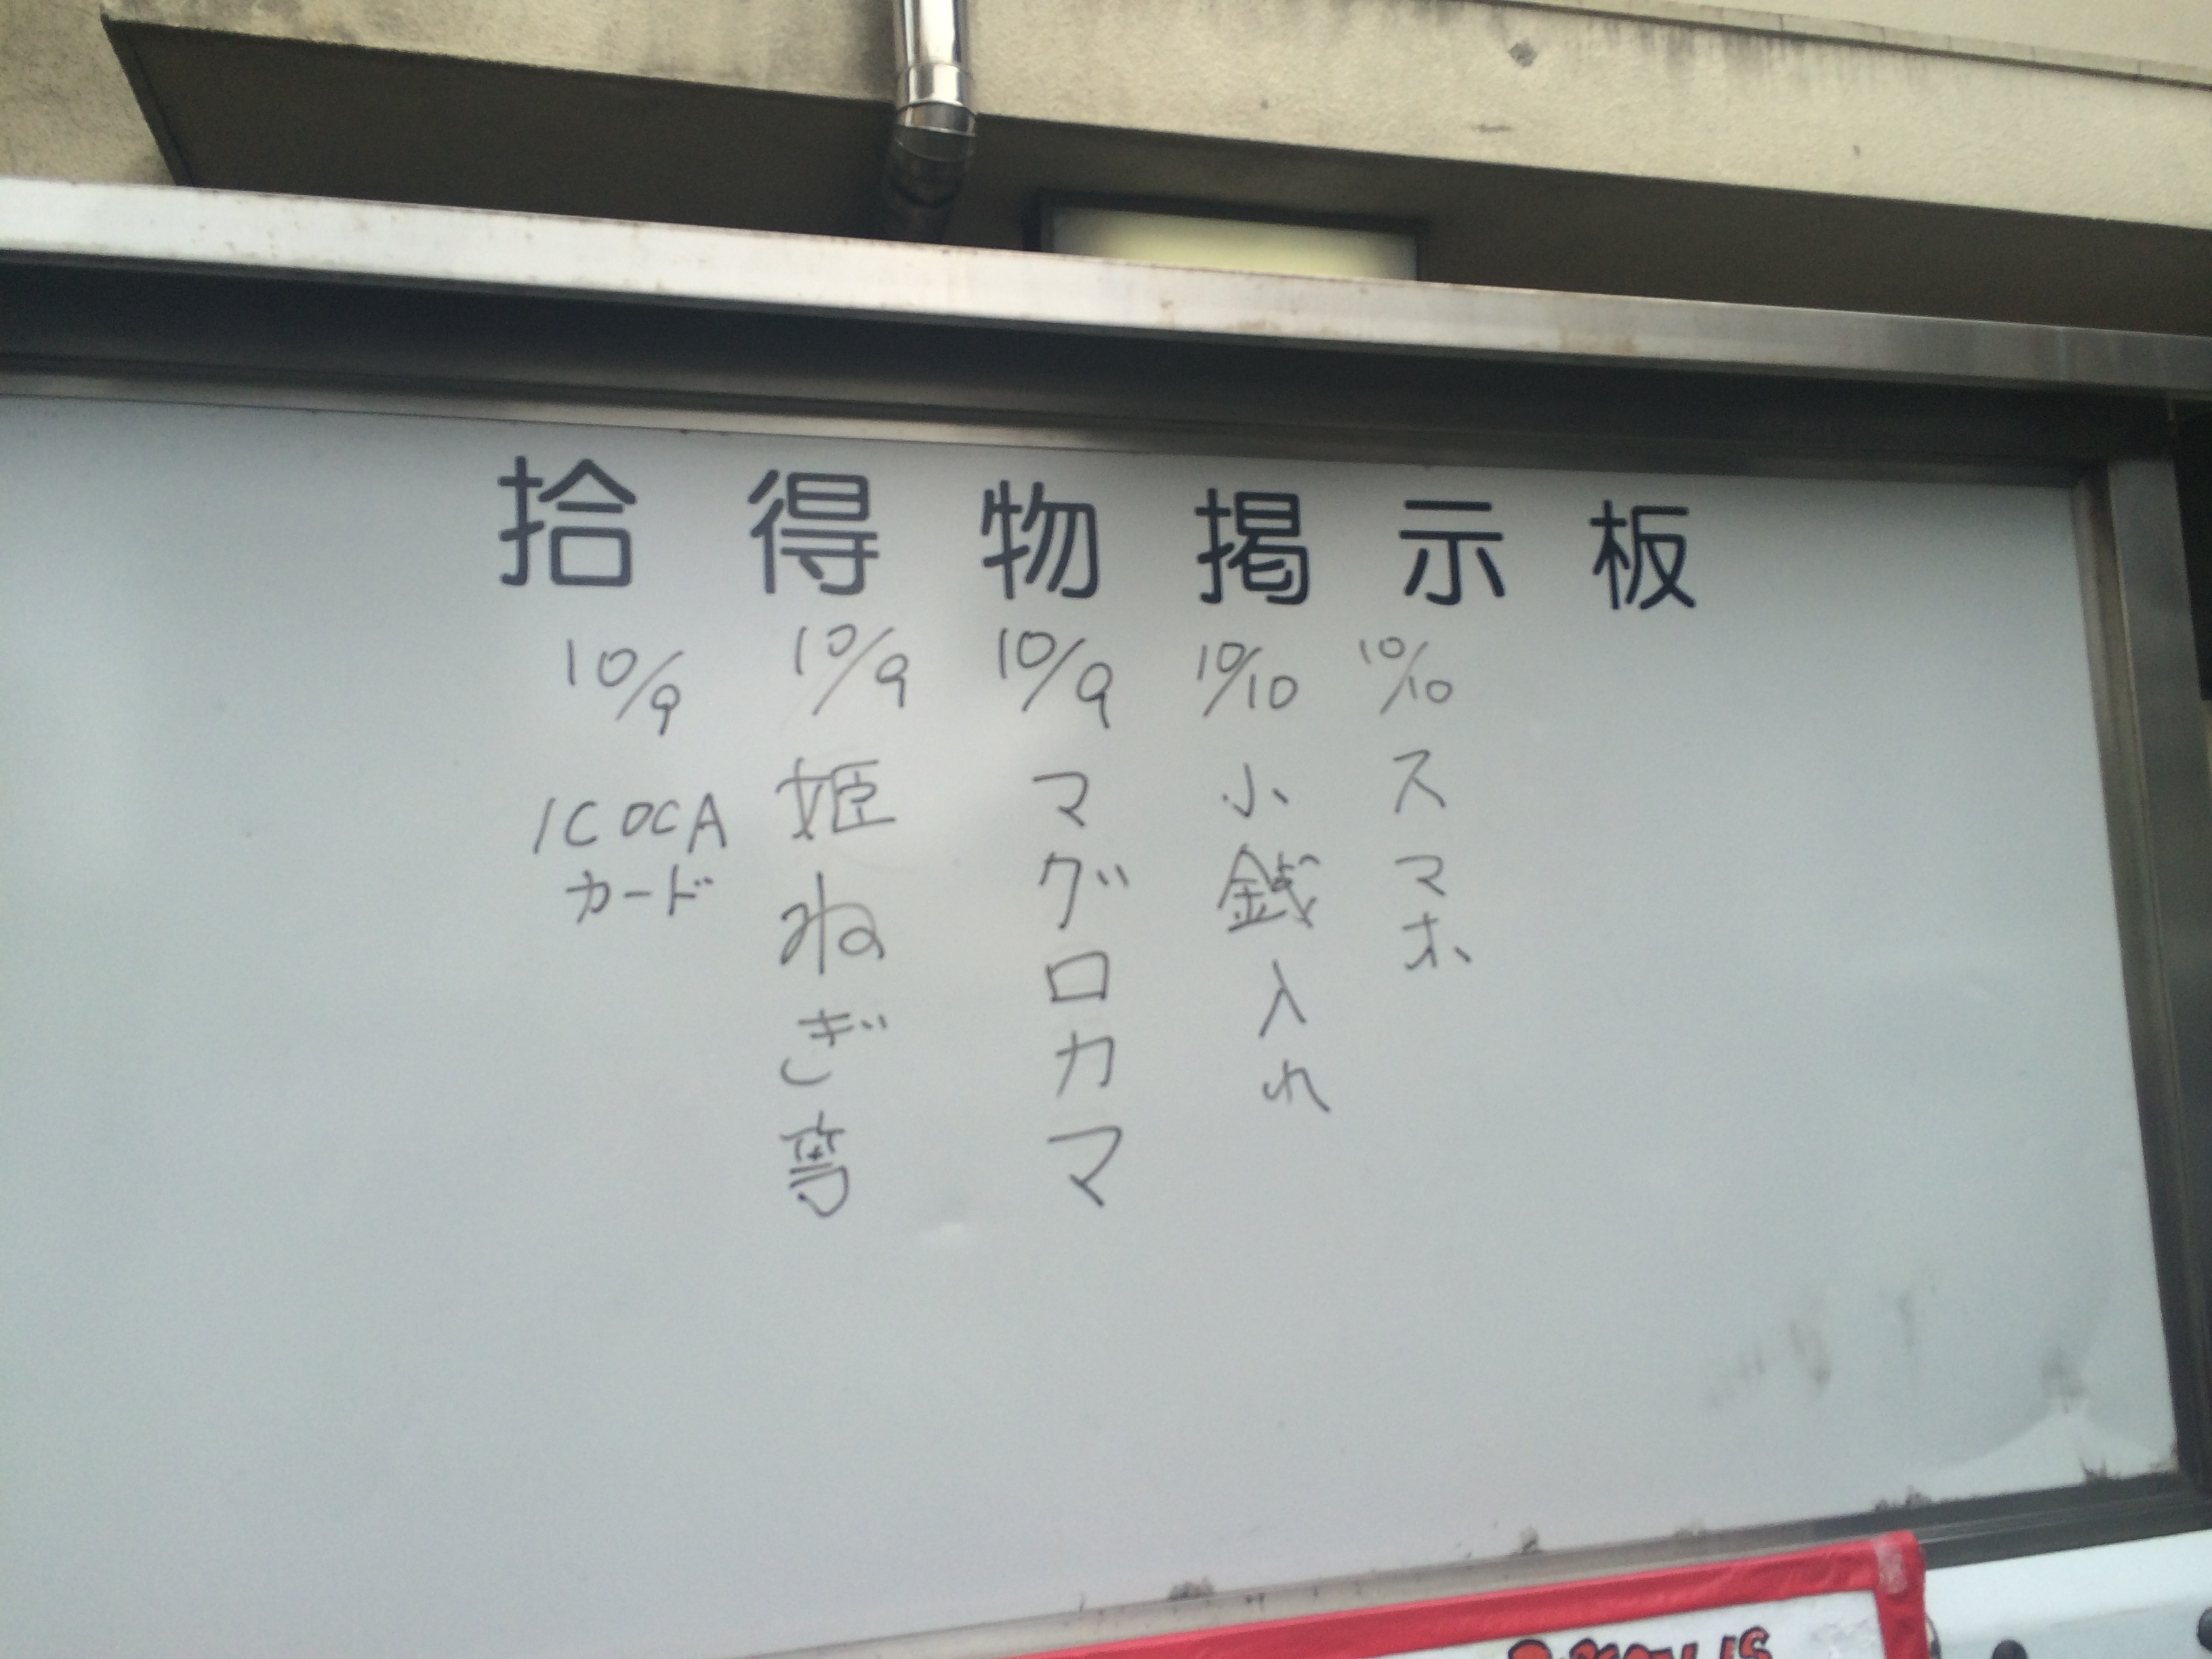 拾得物掲示板
10/10 スマホ
10/10 小銭入れ
10/9 マグロカマ
10/9 姫ねぎ等
10/9 ICOCA
カード